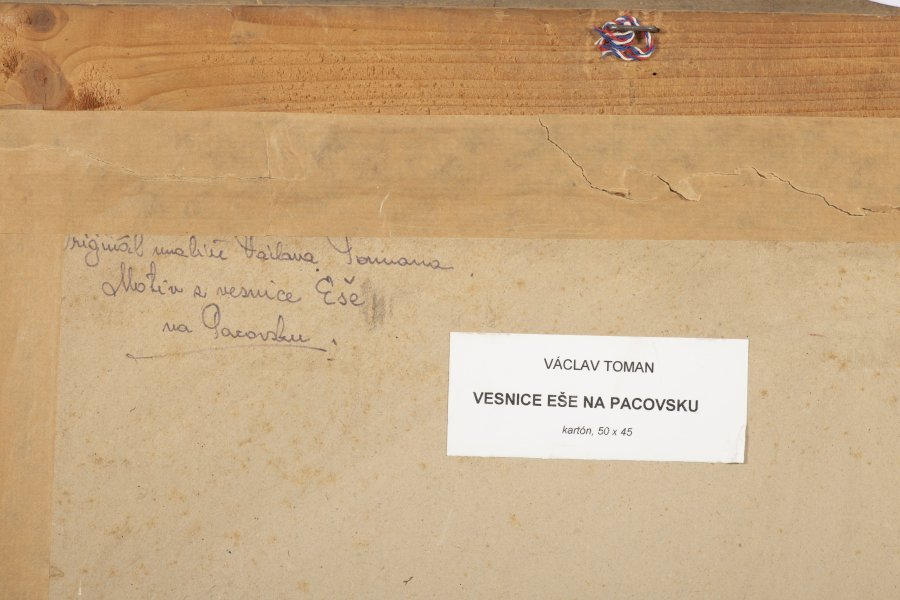 Originál malíře Václava Tomana.
Motiv z vesnice Eše
na Pacovsku.
VÁCLAV TOMAN
VESNICE EŠE NA PACOVSKU
kartón, 50 x 45